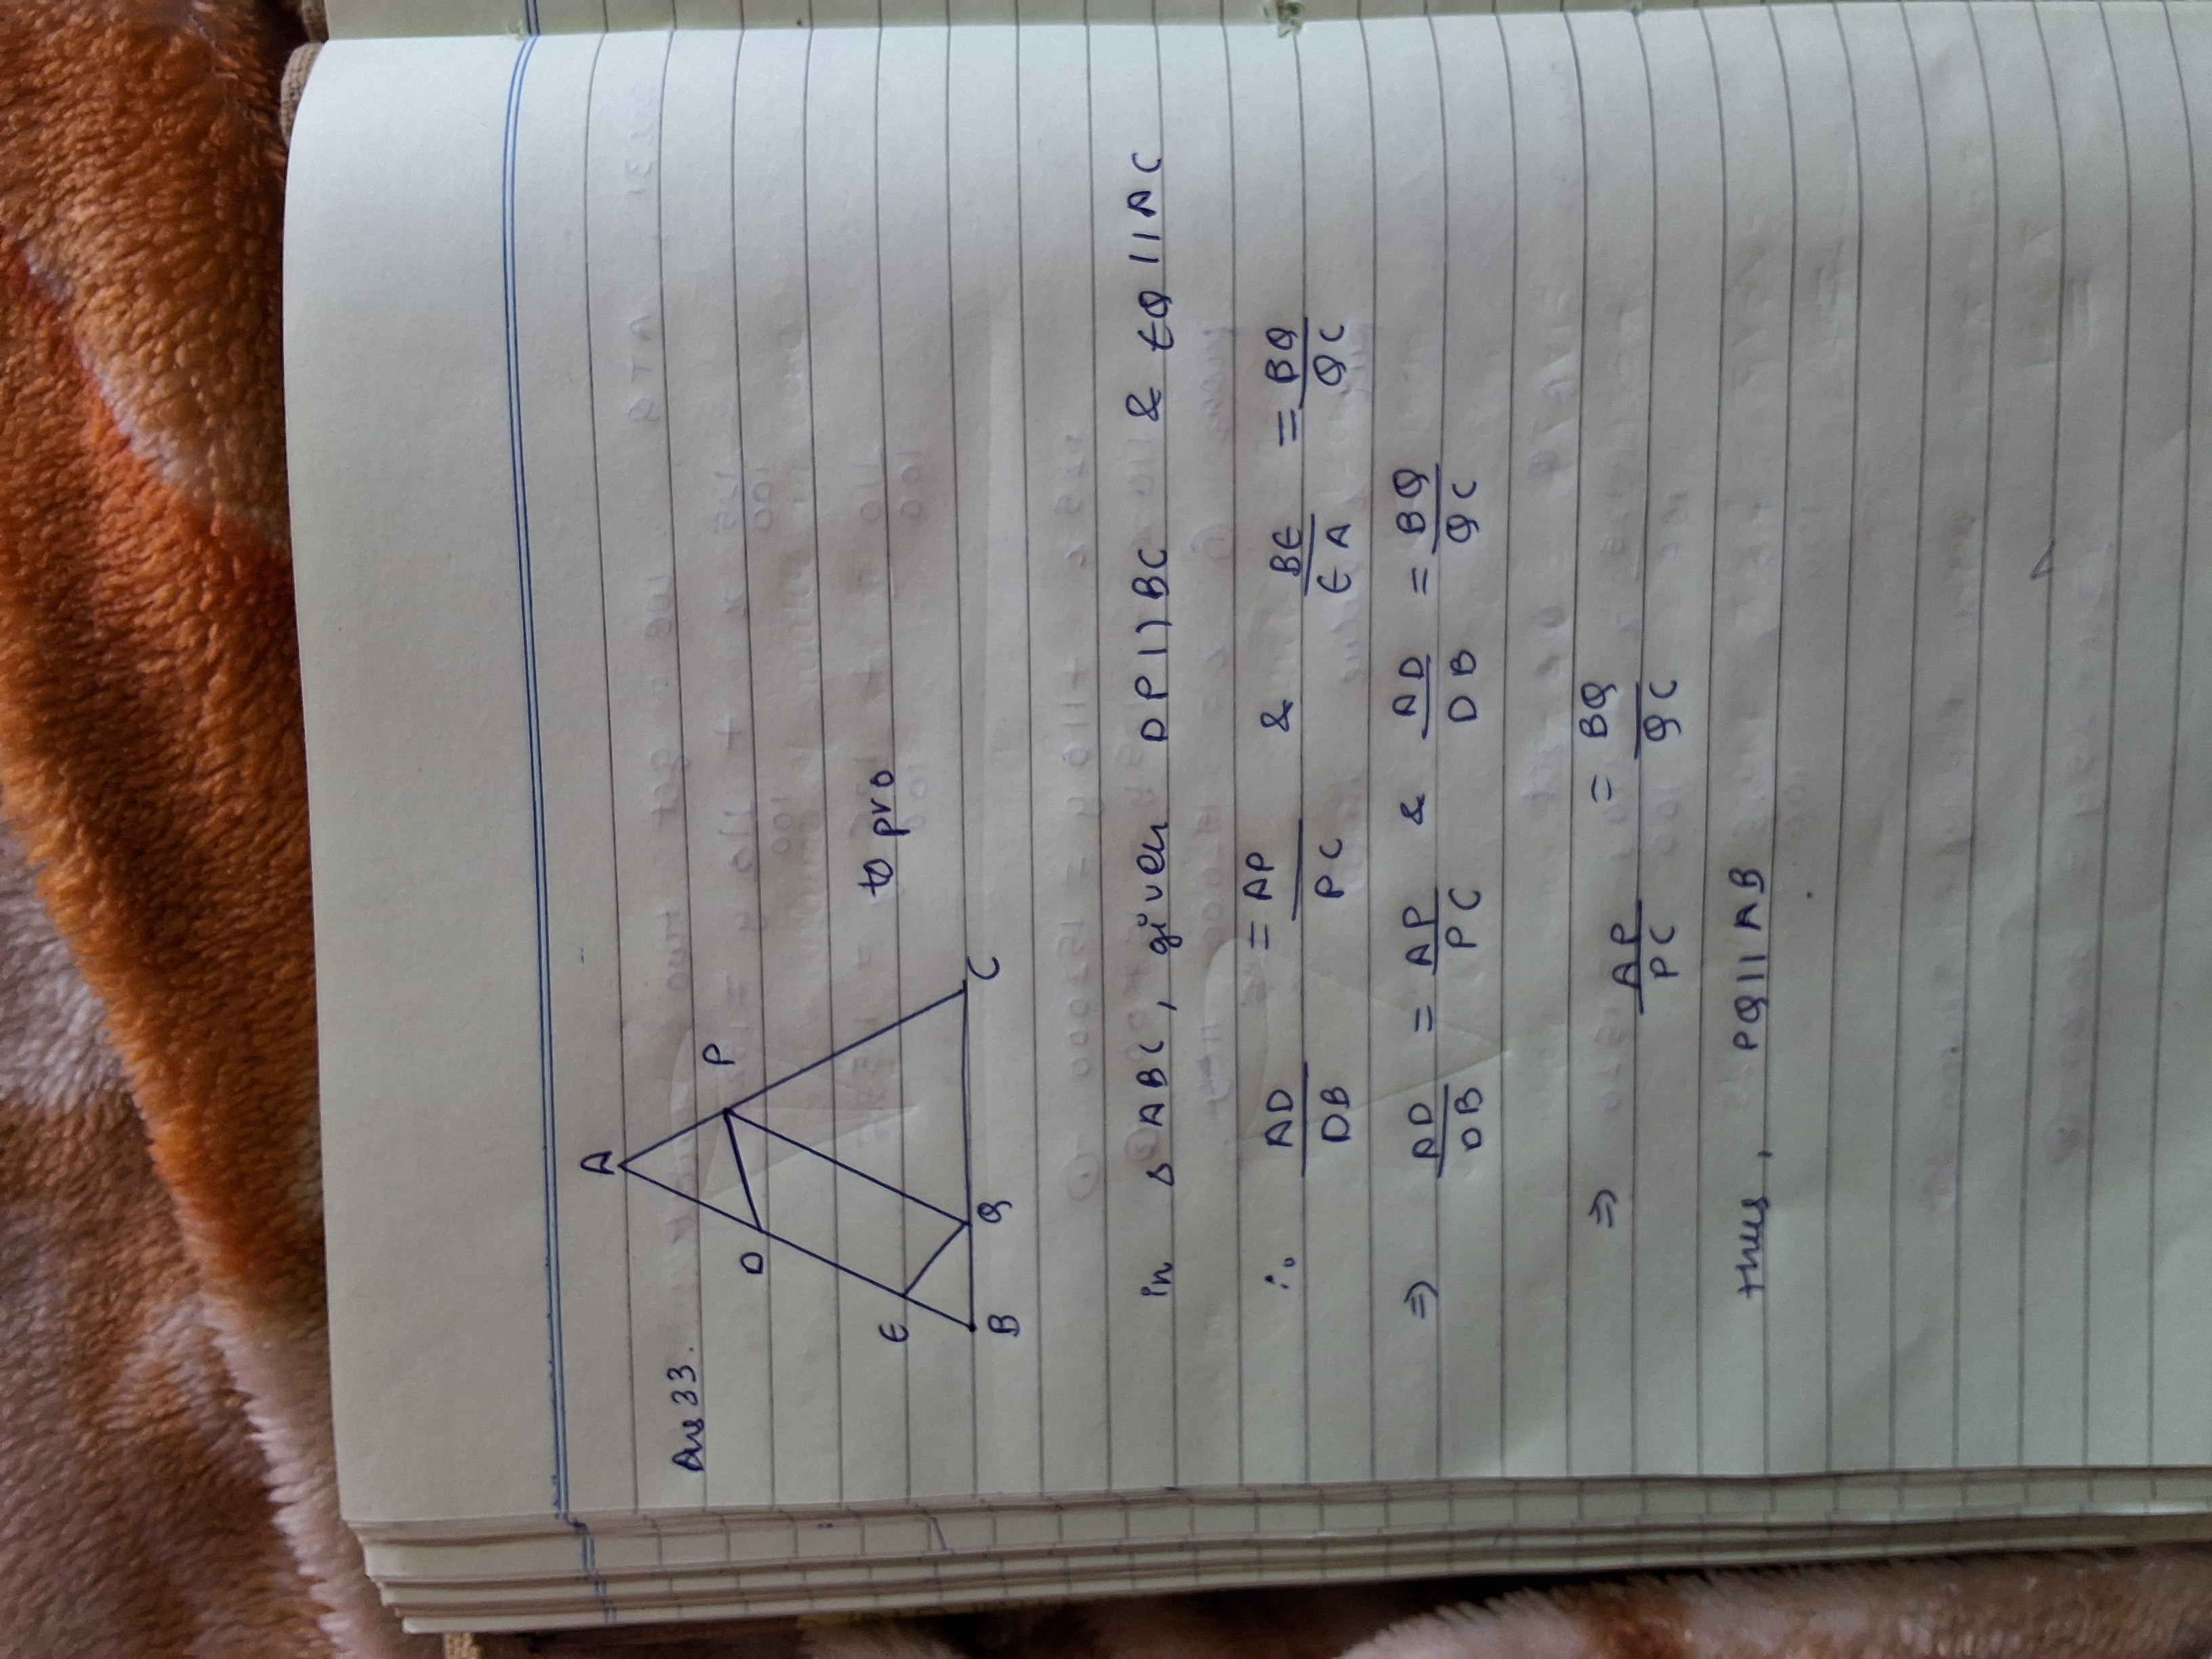 Ans 33.
A
P
D
E
B
Q
C
to pro
in Δ ABC, given DP || BC & EQ || AC
∴ AD/DB = AP/PC & BE/EA = BQ/QC
⇒ AD/DB = AP/PC & AD/DB = BQ/QC
⇒ AP/PC = BQ/QC
thus, PQ || AB